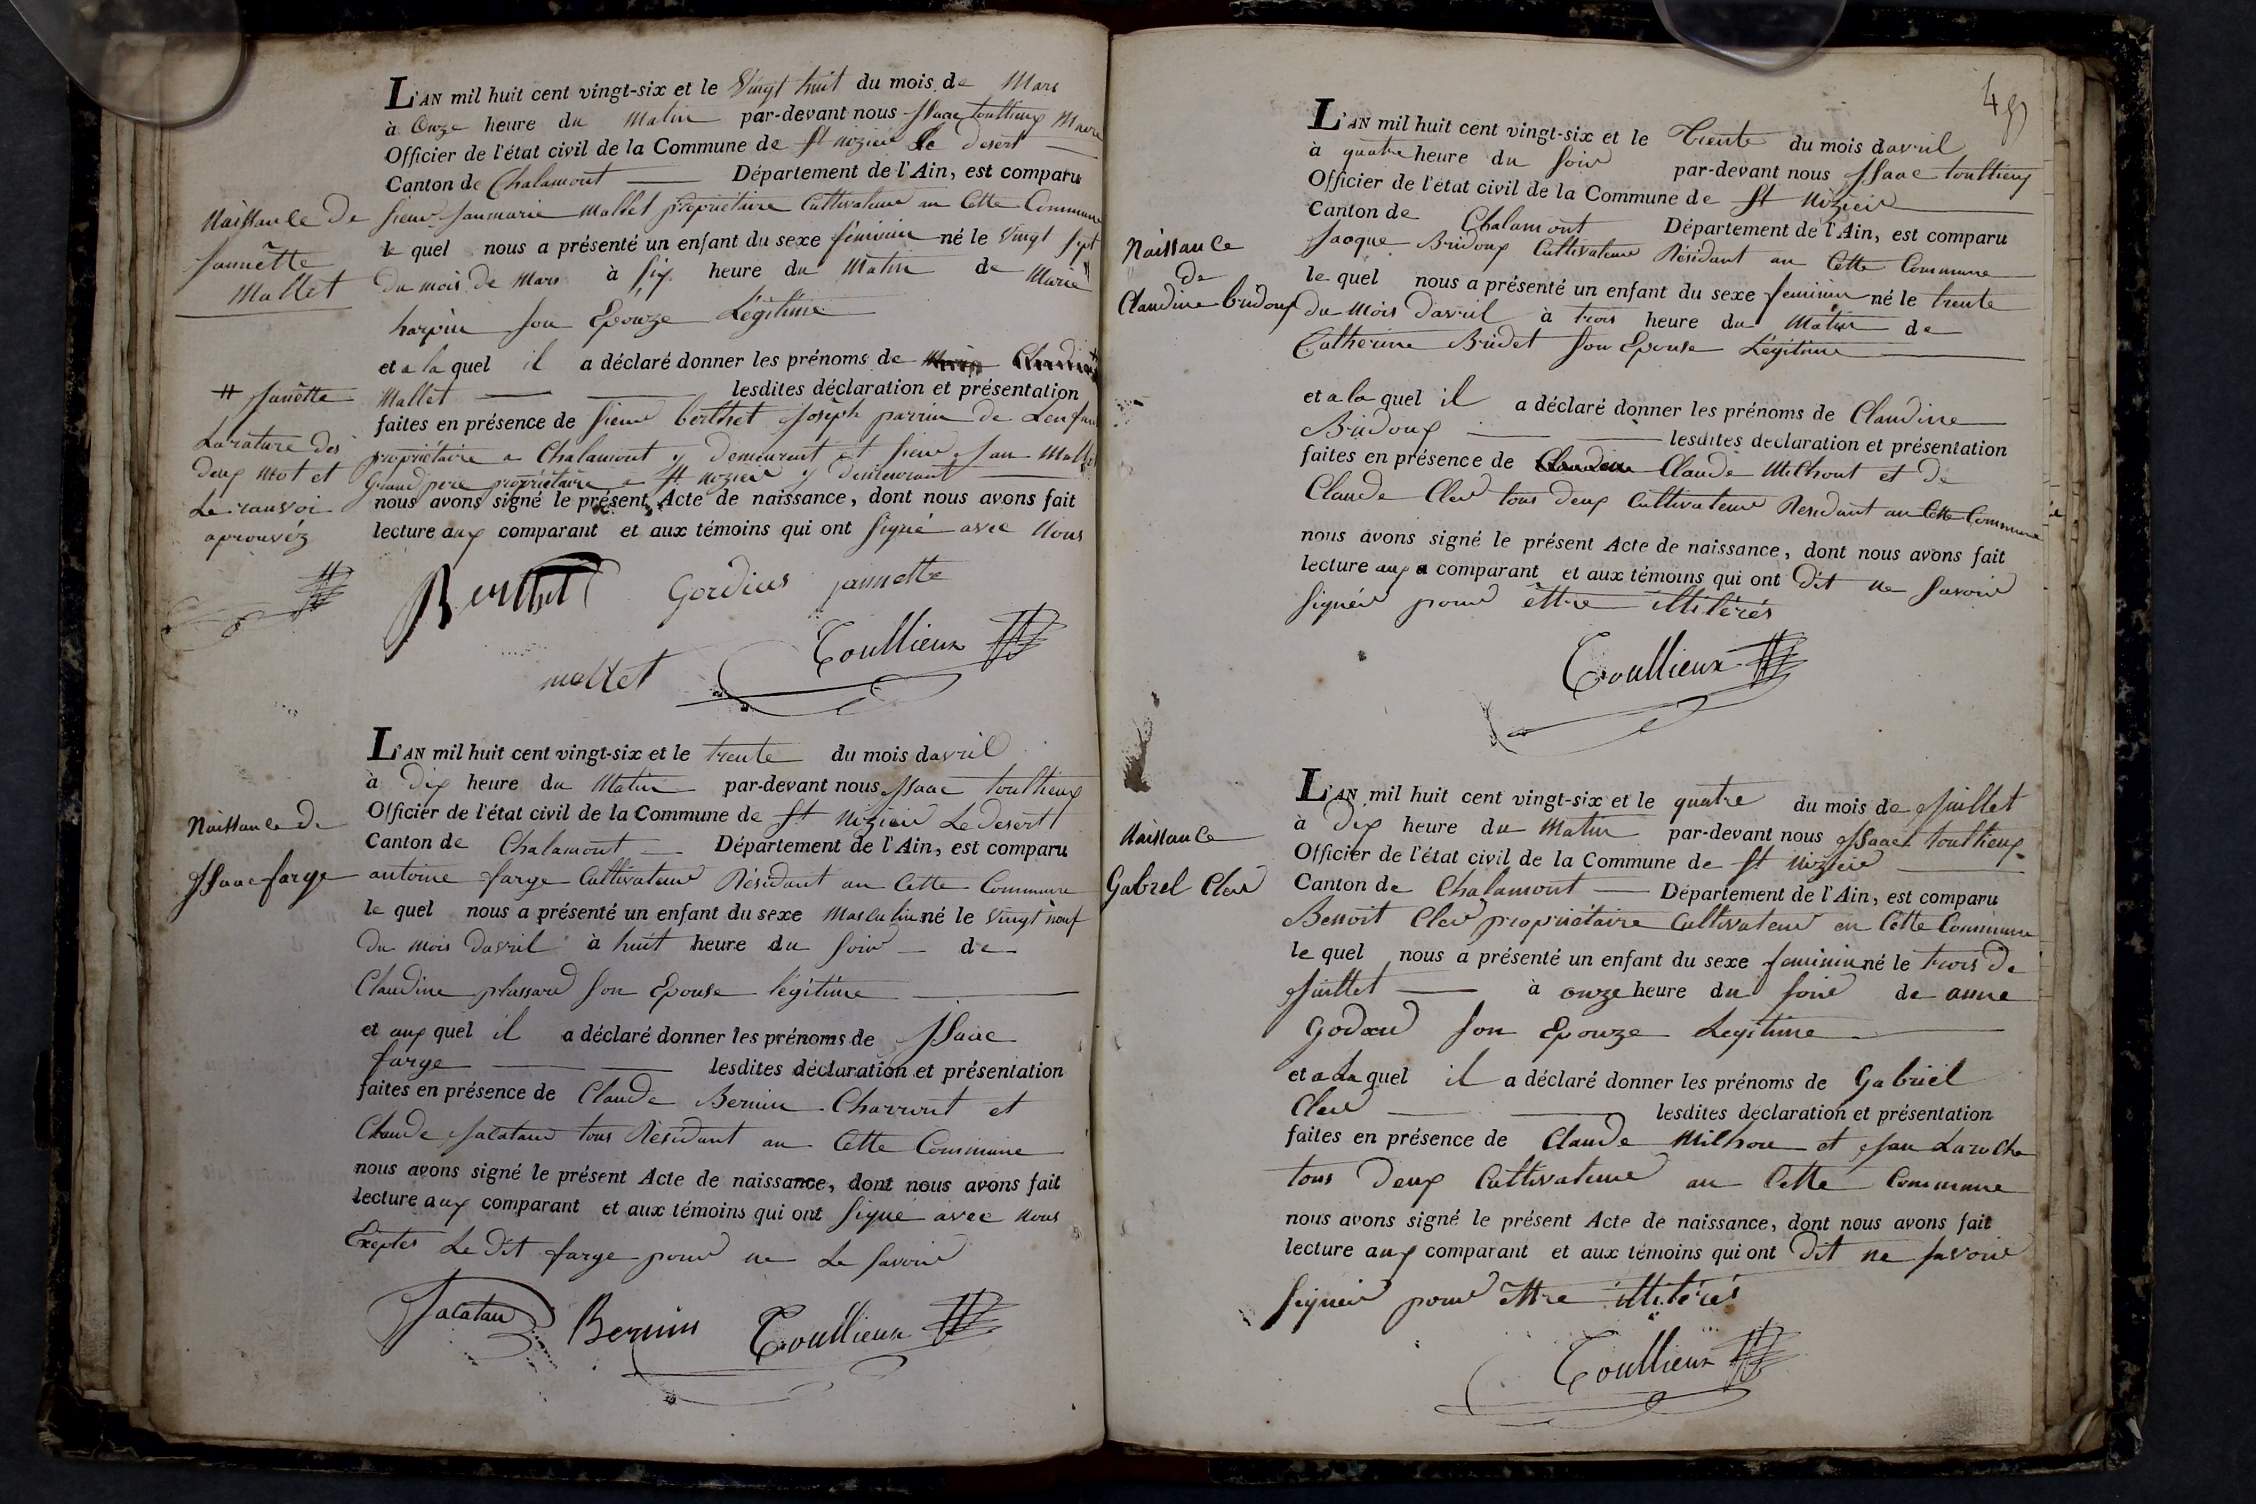 L'AN mil huit cent vingt-six et le Vingt huit du mois de Mars
à Onze heure du Matin par-devant nous Isaac toullieux Maire
Officier de l'état civil de la Commune de St nizier Le desert
Canton de Chalamont Département de l'Ain, est comparu
Naissance de
Jannêtte
Mallet
Sieur Janmarie Mallet propriétaire Cultivateur an Cette Commune
le quel nous a présenté un enfant du sexe féminin né le Vingt Sept
du mois de Mars à Six heure du Matin de Marie
harpin Son Epouze Légitime
et a la quel il a déclaré donner les prénoms de
Mallet lesdites déclaration et présentation
faites en présence de Sieur berthet Joseph parrin de Lenfant
propriétaire a Chalamont y demeurent et Sieur Jan Mallet
Grand pere propriétaire a St nizier y demeurant
nous avons signé le présent Acte de naissance, dont nous avons fait
lecture aux comparant et aux témoins qui ont Signé avec Nous
# Janêtte
La rature des
deux mot et
Le ranvoi
aprouvéz
Berthet Gordies jannette
mallet Toullieux
L'AN mil huit cent vingt-six et le trente du mois davril
à Dix heure du Matin par-devant nous Isaac toullieux
Officier de l'état civil de la Commune de St Nizier Le desert
Canton de Chalamont Département de l'Ain, est comparu
Naissance de
Isaac farge
antoine farge Cultivateur Résidant an Cette Commune
le quel nous a présenté un enfant du sexe Masculin né le Vingt nouf
du mois davril à huit heure du Soir de
Claudine plassard Son Epouse légitime
et aux quel il a déclaré donner les prénoms de Isaac
farge lesdites déclaration et présentation
faites en présence de Claude Bernin Charront et
Claude Jacataud tous Résidant an Cette Commune
nous avons signé le présent Acte de naissance, dont nous avons fait
lecture aux comparant et aux témoins qui ont Signé avec Nous
Exeptes Le dit farge pour ne Le Savoir
Jacatau Bernin Toullieux
49
L'AN mil huit cent vingt-six et le Trente du mois davril
à quatre heure du Soir par-devant nous Isaac toullieux
Officier de l'état civil de la Commune de St Nizier
Canton de Chalamont Département de l'Ain, est comparu
Naissance
de
Claudine bridoux
Jacque Bridoux Cultivateur Résidant an Cette Commune
le quel nous a présenté un enfant du sexe feminin né le trente
du Mois D'avril à trois heure du Matin de
Catherine Bridet Son Epouse Légitime
et a la quel il a déclaré donner les prénoms de Claudine
Bridoux lesdites déclaration et présentation
faites en présence de Claude Milhont et de
Claude Cler tous deux Cultivateur Residant an Cette Commune
nous avons signé le présent Acte de naissance, dont nous avons fait
lecture aux comparant et aux témoins qui ont Dit ne Savoir
Signér pour êttre illitérés
Toullieux
L'AN mil huit cent vingt-six et le quatre du mois de Juillet
à Dix heure du Matin par-devant nous Isaac toullieux
Officier de l'état civil de la Commune de St Nizier
Canton de Chalamont Département de l'Ain, est comparu
Naissance
Gabrel Cler
Bennoit Cler propriétaire Cultivateur en Cette Commune
le quel nous a présenté un enfant du sexe feminin né le trois de
Juillet à onze heure du Soir de anne
Godard Son Epouze Legitime
et a La quel il a déclaré donner les prénoms de Gabriel
Cler lesdites déclaration et présentation
faites en présence de Claude Milhon et Jan Laroche
tous deux Cultivateur an Cette Commune
nous avons signé le présent Acte de naissance, dont nous avons fait
lecture aux comparant et aux témoins qui ont Dit ne Savoir
Signér pour êttre illitérés
Toullieux